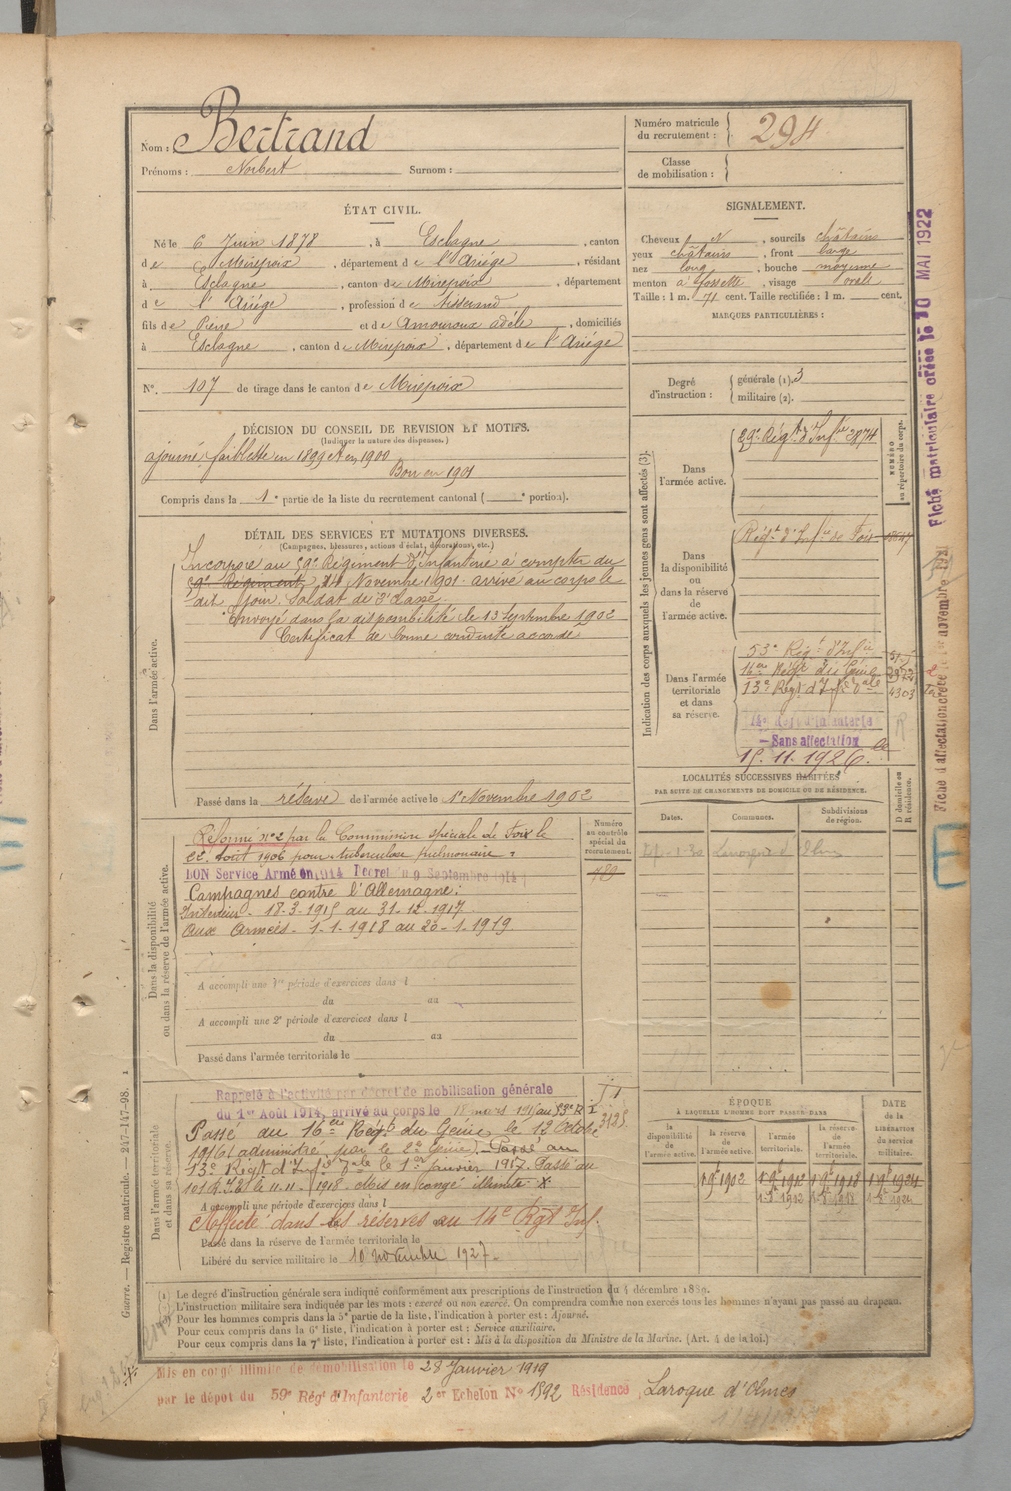 Nom : Bertrand
Prénoms : Norbert Surnom :
Numéro matricule du recrutement : 294
Classe de mobilisation :
ÉTAT CIVIL.
Né le 6 Juin 1878, à Esclagne, canton
de Mirepoix, département de l'Ariège, résidant
à Esclagne, canton de Mirepoix, département
de l'Ariége, profession de tisserand
fils de Pierre et de Amouroux adèle, domiciliés
à Esclagne, canton de Mirepoix, département de l'Ariége
N°. 107 de tirage dans le canton de Mirepoix
SIGNALEMENT.
Cheveux N, sourcils châtain
yeux châtains, front large
nez long, bouche moyenne
menton à fossette, visage ovale
Taille : 1 m. 71 cent. Taille rectifiée : 1 m. cent.
MARQUES PARTICULIÈRES :
Degré d'instruction : générale (1). 3
militaire (2).
DÉCISION DU CONSEIL DE REVISION ET MOTIFS.
(Indiquer la nature des dispenses.)
ajourné faiblesse en 1899 et en 1900
Bon en 1901
Compris dans la 1e partie de la liste du recrutement cantonal ( e portion).
DÉTAIL DES SERVICES ET MUTATIONS DIVERSES.
(Campagnes, blessures, actions d'éclat, décorations, etc.)
Dans l'armée active.
Incorporé au 59e Régiment d'Infanterie à compter du
9e Régiment 14 Novembre 1901. arrivé au corps le
dit jour. Soldat de 2e classe.
Envoyé dans la disponibilité le 13 Septembre 1902
Certificat de bonne conduite accordé
Passé dans la réserve de l'armée active le 1er Novembre 1902
Dans la disponibilité ou dans la réserve de l'armée active.
Réformé n°2 par la Commission spéciale de Foix le
22 Août 1906 pour tuberculose pulmonaire.
BON Service Armé en 1914 Décret du 9 Septembre 1914
Campagnes contre l'Allemagne :
Intérieur - 18-3-1915 au 31-12-1917
Aux Armées - 1-1-1918 au 20-1-1919
A accompli une 1re période d'exercices dans l
du au
A accompli une 2e période d'exercices dans l
du au
Passé dans l'armée territoriale le
Numéro au contrôle spécial du recrutement.
Dans l'armée territoriale et dans sa réserve.
Rappelé à l'activité par décret de mobilisation générale
du 1er Août 1914, arrivé au corps le 18 mars 1915 au 53e R I
Passé au 16e Régt du Génie, le 12 Octobre
1916 (administré par le 2e Génie). Passé au
13e Régt d'Infie Tale le 1er janvier 1917. Passé au
101 R.I.T. le 11-11-1918 Mis en congé illimité X
A accompli une période d'exercices dans l
Affecté dans les réserves au 14e Rgt Inf.
Passé dans la réserve de l'armée territoriale le
Libéré du service militaire le 10 novembre 1927.
Indication des corps auxquels les jeunes gens sont affectés (3).
NUMÉRO au répertoire du corps.
Dans l'armée active.
59e Régt d'Infie 2874
Dans la disponibilité ou dans la réserve de l'armée active.
Régt d'Infie de Foix
Dans l'armée territoriale et dans sa réserve.
53e Régt d'Infie
16e Régt du Génie
13e Régt d'Infie Tale 4303
14e Régt d'infanterie
Sans affectation
15.11.1926
LOCALITÉS SUCCESSIVES HABITÉES
PAR SUITE DE CHANGEMENTS DE DOMICILE OU DE RÉSIDENCE.
Dates. Communes. Subdivisions de région. D domicile ou R résidence.
Laroque d'Olmes
ÉPOQUE
À LAQUELLE L'HOMME DOIT PASSER DANS
la disponibilité de l'armée active. la réserve de l'armée active. l'armée territoriale. la réserve de l'armée territoriale.
DATE de la LIBÉRATION du service militaire.
1 9bre 1902 1 9bre 1912 1 9bre 1918 1 9bre 1924
(1) Le degré d'instruction générale sera indiqué conformément aux prescriptions de l'instruction du 4 décembre 1889.
L'instruction militaire sera indiquée par les mots : exercé ou non exercé. On comprendra comme non exercés tous les hommes n'ayant pas passé au drapeau.
Pour les hommes compris dans la 5e partie de la liste, l'indication à porter est : Ajourné.
Pour ceux compris dans la 6e liste, l'indication à porter est : Service auxiliaire.
Pour ceux compris dans la 7e liste, l'indication à porter est : Mis à la disposition du Ministre de la Marine. (Art. 4 de la loi.)
Mis en congé illimité de démobilisation le 28 Janvier 1919
par le dépot du 59e Régt d'Infanterie 2er Echelon N° 1392 Résidence Laroque d'Olmes
Guerre. — Registre matricule. — 247-147-98.
Fiche matriculaire créée le 10 MAI 1922